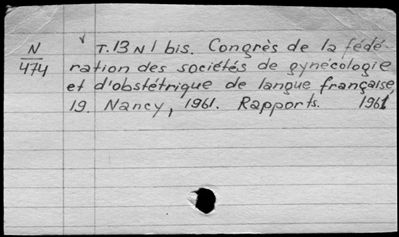 N
474
√ T. 13 N 1 bis. Congrès de la fédé-
ration des sociétés de gynécologie
et d'obstétrique de langue française,
19. Nancy, 1961. Rapports. 1961